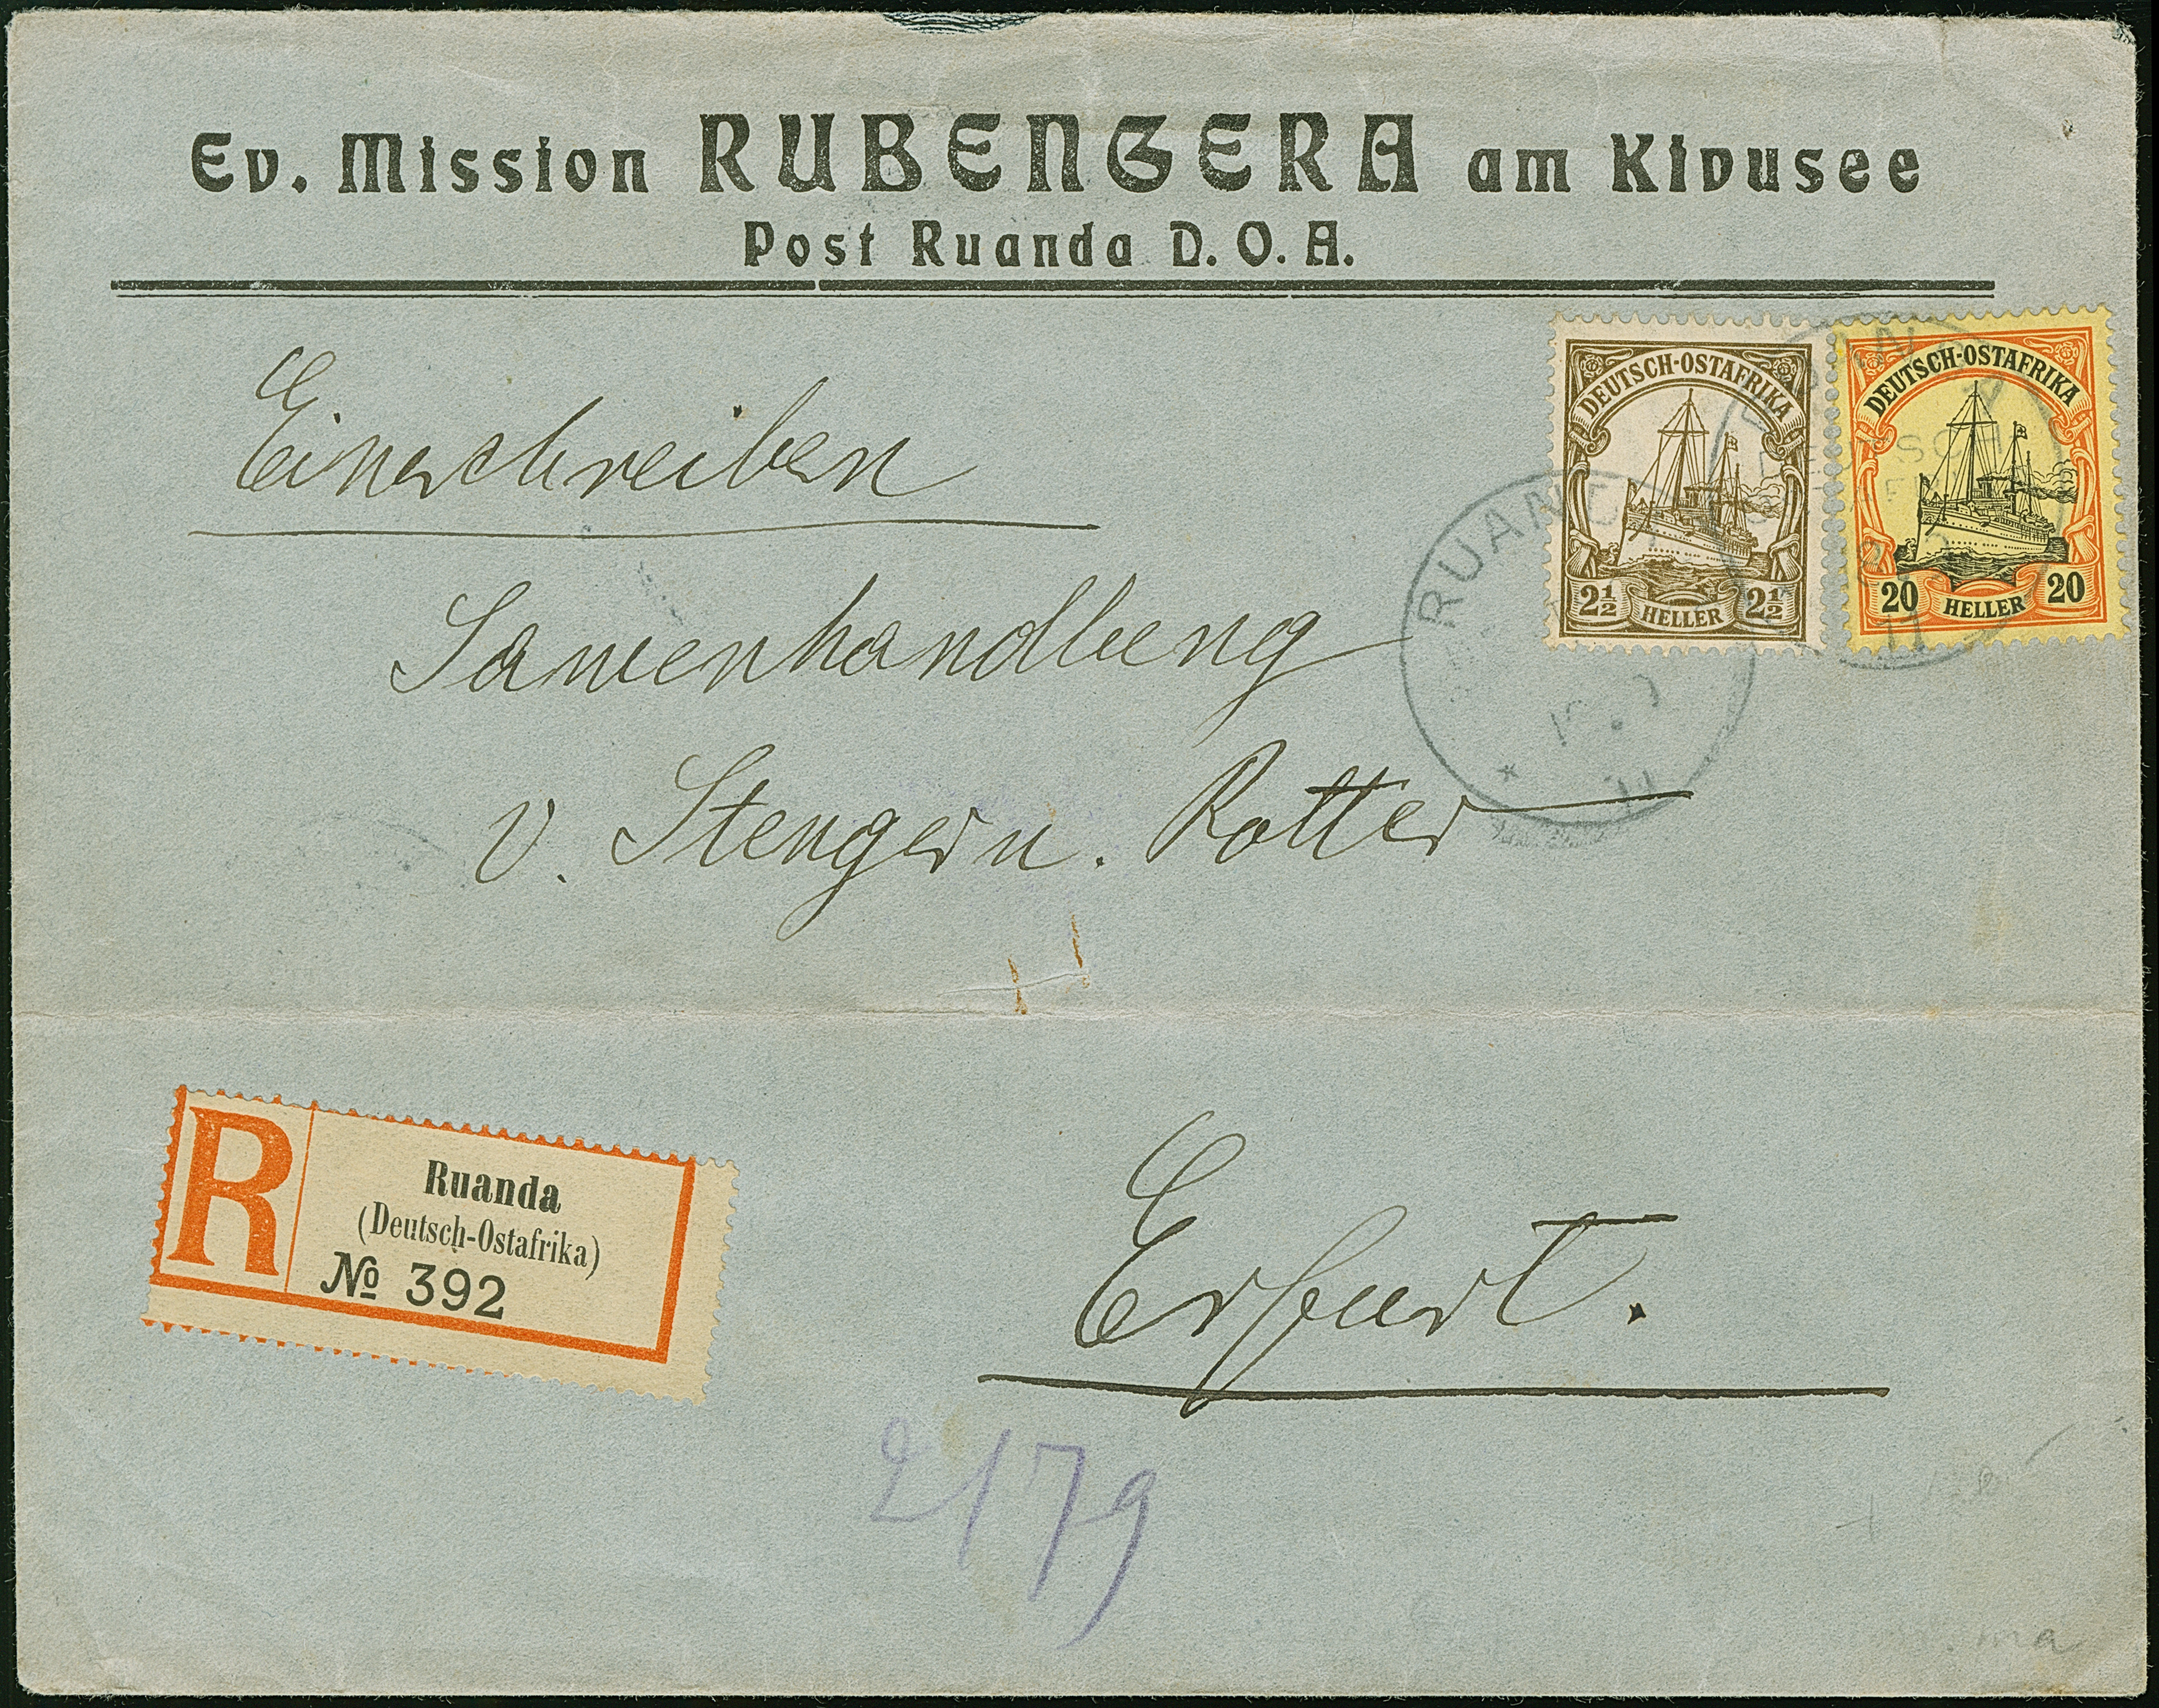 Ev. Mission RUBENGERA am Kivusee
Post Ruanda D. O. A.
Einschreiben
DEUTSCH-OSTAFRIKA
2½ HELLER 2½
DEUTSCH-OSTAFRIKA
20 HELLER 20
RUANDA
11
Samenhandlung
v. Stenger u. Rotter
R
Ruanda
(Deutsch-Ostafrika)
№ 392
Erfurt.
2179